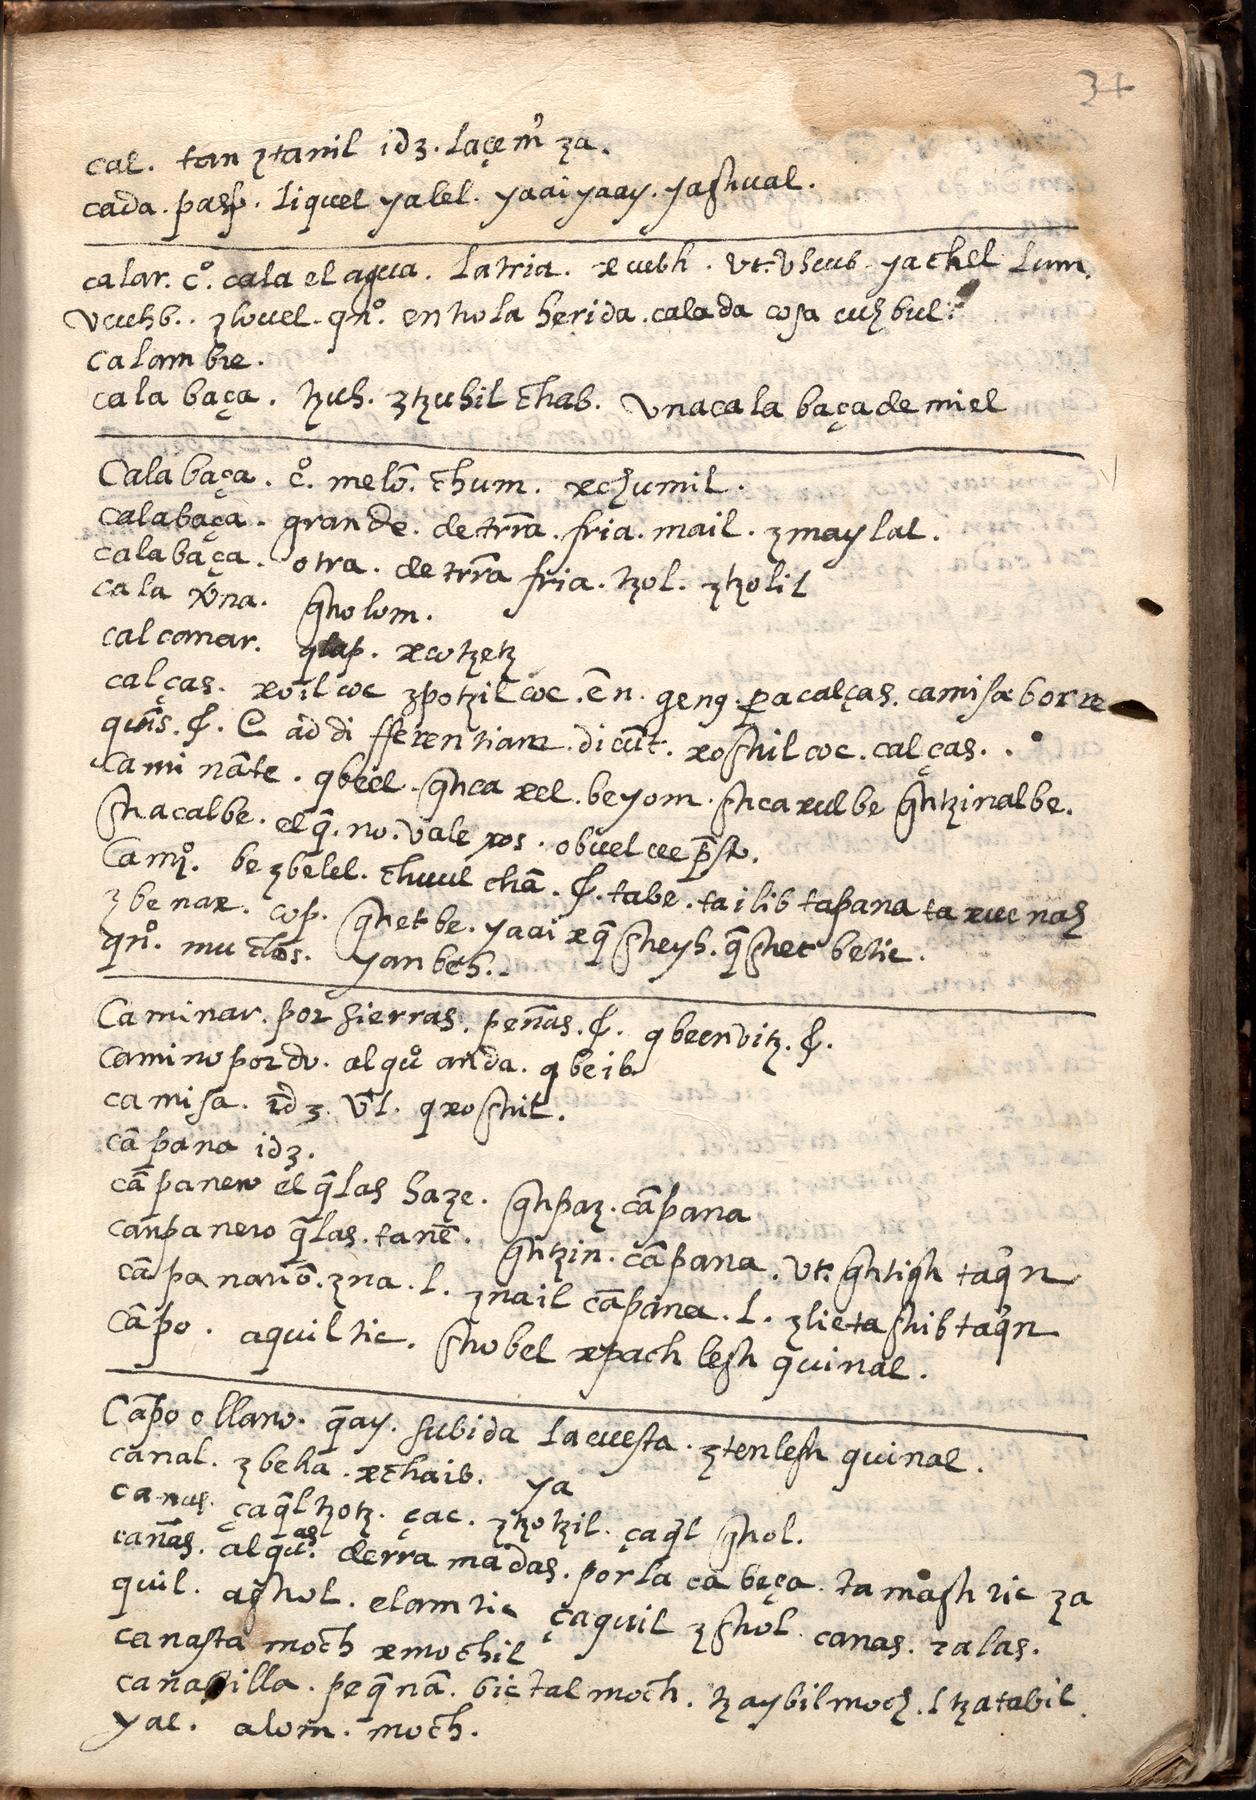 34
cal. tan ztanil idz. laçem̃ za.
cada. pasq̃. liquel yalel. yaai yaay. yashual.
calar. c̊. cala el agua. latria. xuebh. vt. vhcub. yachel lum.
vcuhb.. zlouel. qn̊. entro la herida. calada cosa cuhbul.
calambre.
calabaça. tzuh. ztzuhil chab. vna calabaça de miel
Calabaça. c̊. melō. chum. xchumil.
calabaça. grande. de trr̃a. fria. mail. zmaylal.
calabaça. otra. de trr̃a fria. tzol. ztzolil
cala vna. gholom.
calcanar. xcotzetz
calças. xoilcoc zpotzilcoc. ēn. geng. pa calças. camisa borre
quīs. &. C ad differentiam dicūt. xoshilcoc. calças..
Camināte. qbeel. ghcaxel. beyom. shcaxulbe ghtzinalbe.
shacalbe. elq̃. no. vale xos. obuel uee p̃st.
Camı̊. be zbelel. chuul chā. &. tabe. tailib tapana taxuc nah
zbenax. cop. ghet be. yaai xq̃ sheyh. q̃shet betic.
qn̊. muchos. yanbeh.
Caminar. por sierras. peñas. &. qbeenvitz. &.
Camino por do. alqů anda. qbeib
camisa. idz. vl. qxoshil.
cāpana idz.
cāpanero el q̃ las haze. ghpaz. cāpana
canpanero q̃ las. tanē. ghtzin. cāpana. vt. ghtigh taq̃n
cāpanariō. zna. l. znail cāpana. l. zlietashib taq̃n
Cāpo. aquiltic. shobel xpach lesh quinal.
Cāpo o llano. q̃ay. subida la cuesta. ztenlesh quinal.
canal. zbeha. xchaib. ya
canus. çaq̃l tzotz. çac. ztzotzil. çaq̃l ghol.
canas. alqůas. derramadas. por la cabeça. tamashtic za
quil. ashol. elamtic çaquil zshol. canas. ralas.
canasta moch xmochil
canastilla. peq̃nā. bictal moch. tzaybil moch. l tzatabil.
yal. alom. moch.